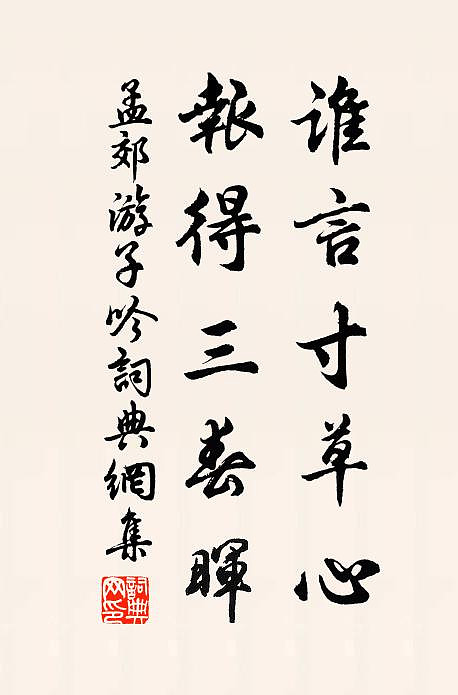 誰言寸草心
報得三春暉
孟郊游子吟詞典網集
詞典網印